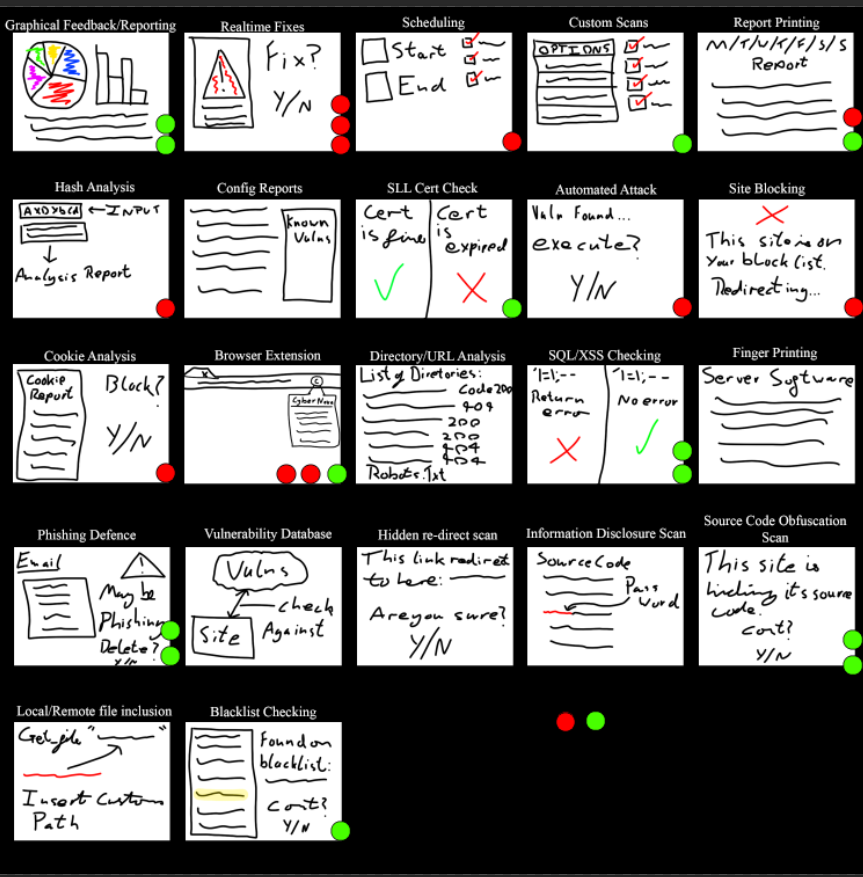 Graphical Feedback/Reporting
Realtime Fixes
Fix?
Y/N
Scheduling
Start
End
Custom Scans
OPTIONS
Report Printing
M/T/W/T/F/S/S
Report
Hash Analysis
← INPUT
Analysis Report
Config Reports
Known
Vulns
SLL Cert Check
Cert
is fine
Cert
is
expired
Automated Attack
Vuln Found...
execute?
Y/N
Site Blocking
This site is on
your block list.
Redirecting...
Cookie Analysis
Cookie
Report
Block?
Y/N
Browser Extension
x
C
Directory/URL Analysis
List of Diretories:
Code 200
404
200
200
404
404
Robots.Txt
SQL/XSS Checking
'1=1;--
Return
error
'1=1;--
No error
Finger Printing
Server Software
Phishing Defence
Email
!
May be
Phishing
Delete?
Y/N
Vulnerability Database
Vulns
check
Against
Site
Hidden re-direct scan
This link redirect
to here:
Are you sure?
Y/N
Information Disclosure Scan
Source Code
Pass
word
Source Code Obfuscation
Scan
This site is
hiding its source
code.
cont?
Y/N
Local/Remote file inclusion
Get_file " "
Insert Custom
Path
Blacklist Checking
Found on
blacklist:
cont?
Y/N